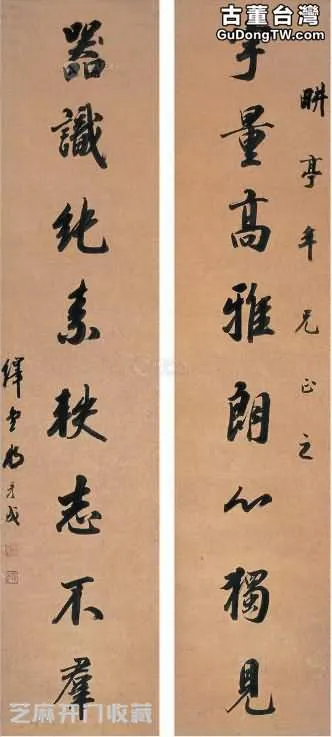 古董台灣
GuDongTW.com
畊亭年兄正之
宇量高雅朗心獨見
器識純素軼志不羣
繹堂那彥成
芝麻开门收藏